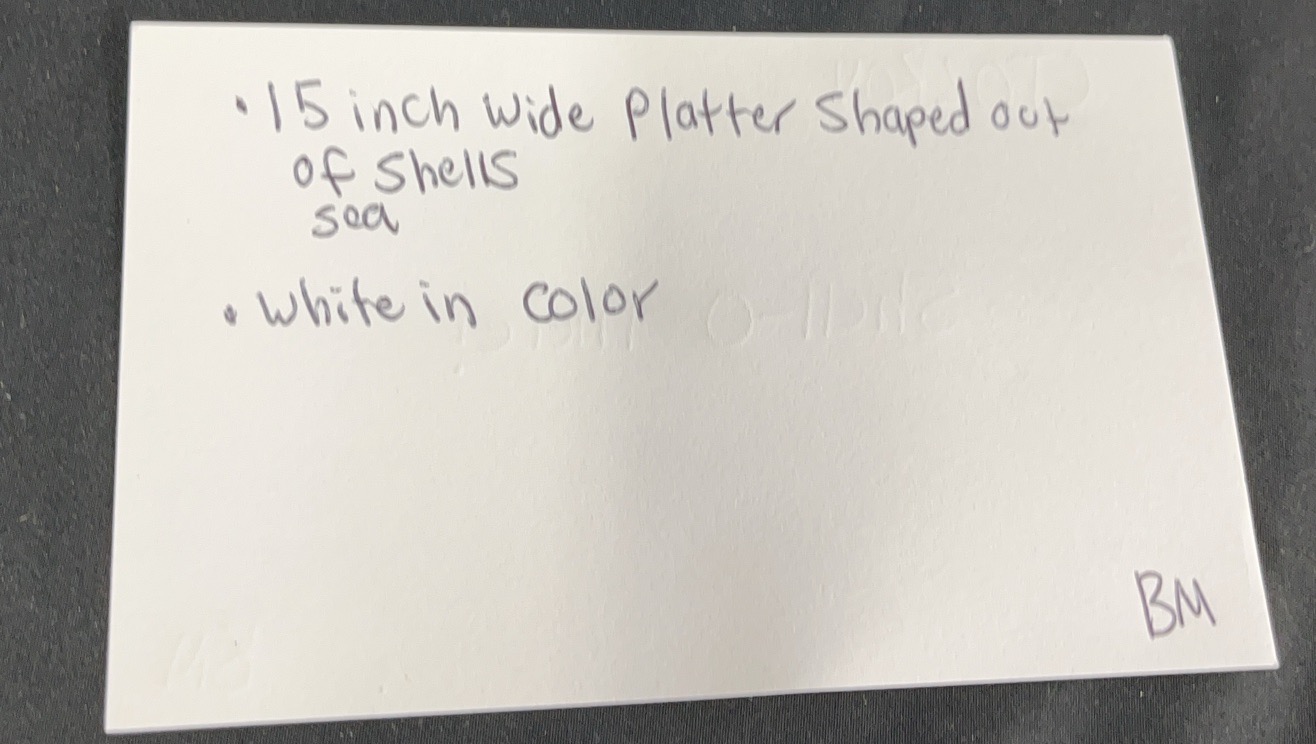 • 15 inch wide Platter Shaped out
of Shells
sea
• white in color
BM